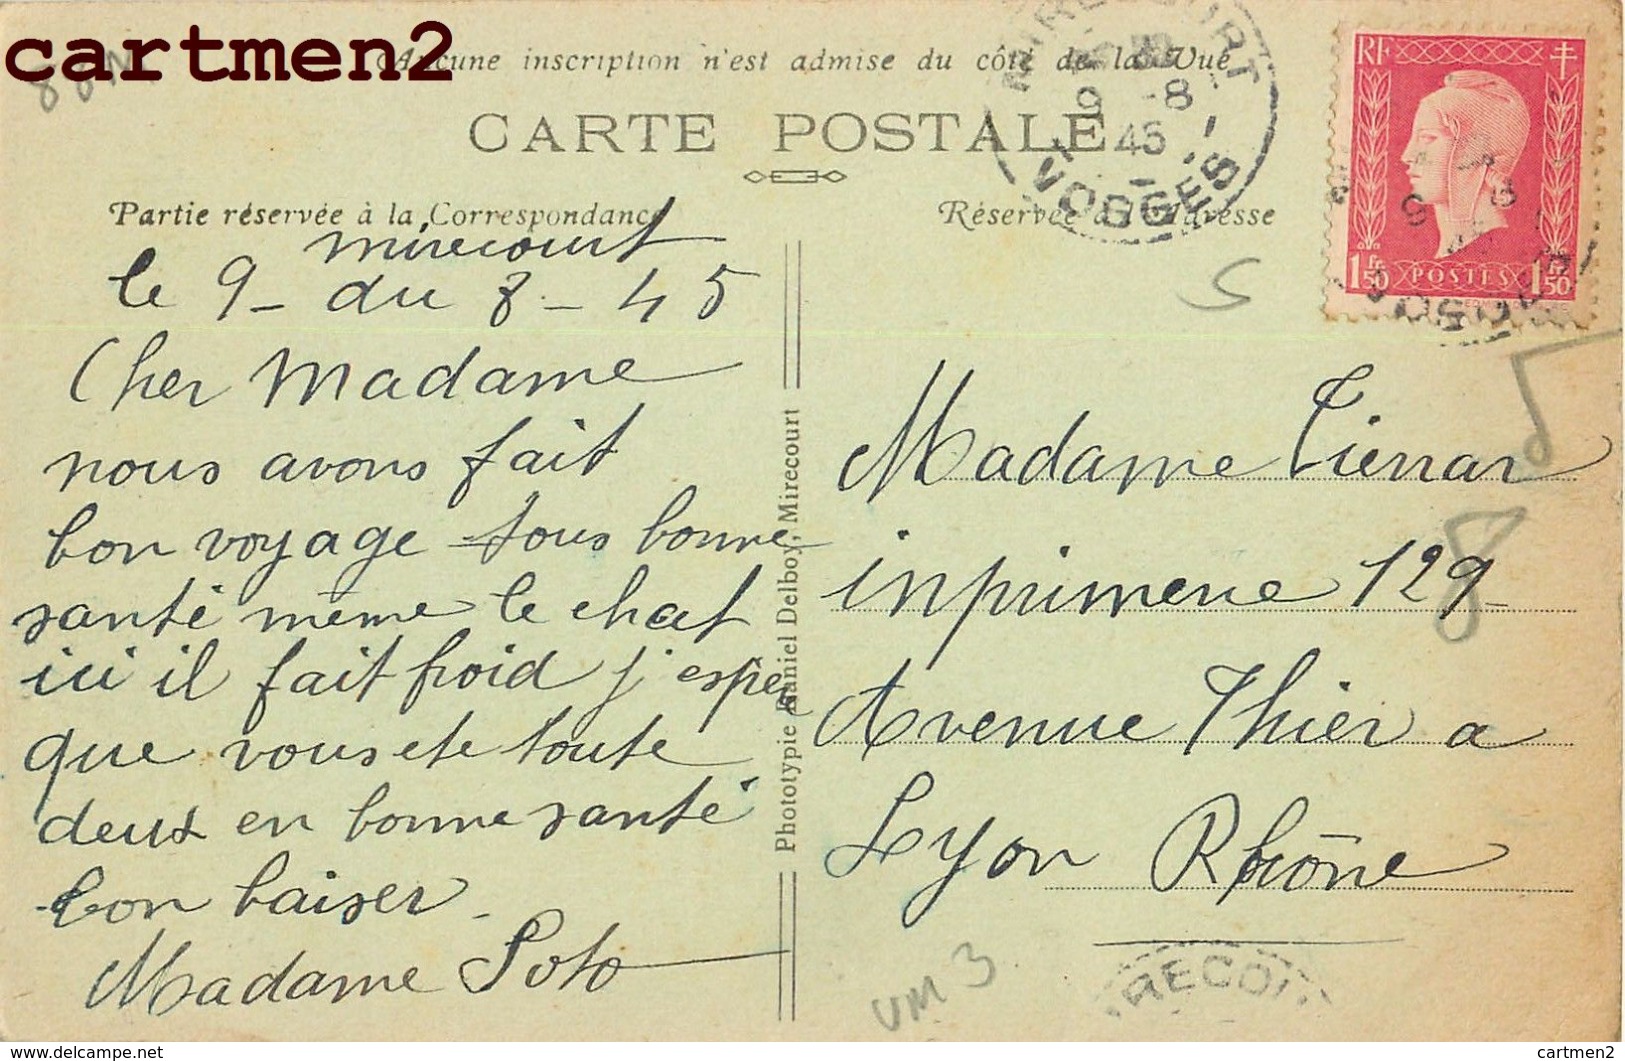 cartmen2
Aucune inscription n'est admise du côté de la Vue
CARTE POSTALE
Partie réservée à la Correspondance
Réservée à l'Adresse
MIRECOURT
9 -8
45
VOSGES
RF
1 Fr. 50 POSTES 1 Fr. 50
mirecourt
le 9 - du 8 - 45
Cher Madame
nous avons fait
bon voyage tous bonne
santé même le chat
ici il fait froid j'espèr
que vous ete toute
deux en bonne santé
bon baiser
Madame Soto
Phototypie Daniel Delboy, Mirecourt
5
Madame Tienar
inprimerie 129
Avenue Thier a
Lyon Rhône
8
VM 3
RECOU
cartmen2